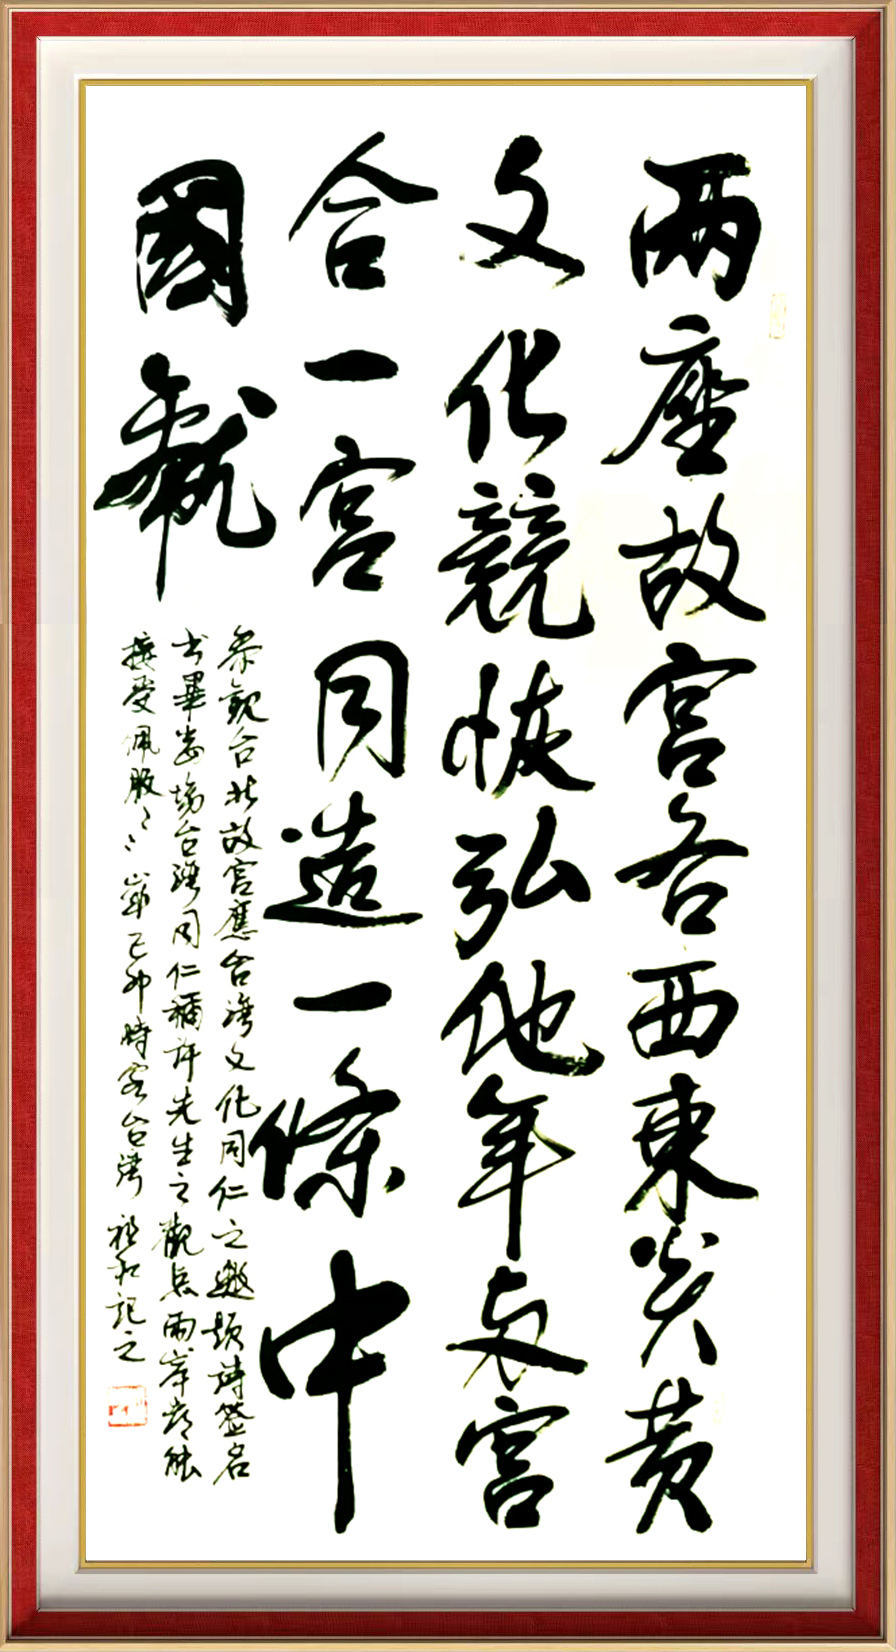 兩座故宮各西東炎黃
文化競恢弘他年宮
合一宮同造一條中
國龍
参觀台北故宮應台灣文化同仁之邀題詩簽名
書畢當場台灣同仁稱許先生之觀点兩岸都能
接受佩服〻〻歲己卯時客台灣 祖和記之